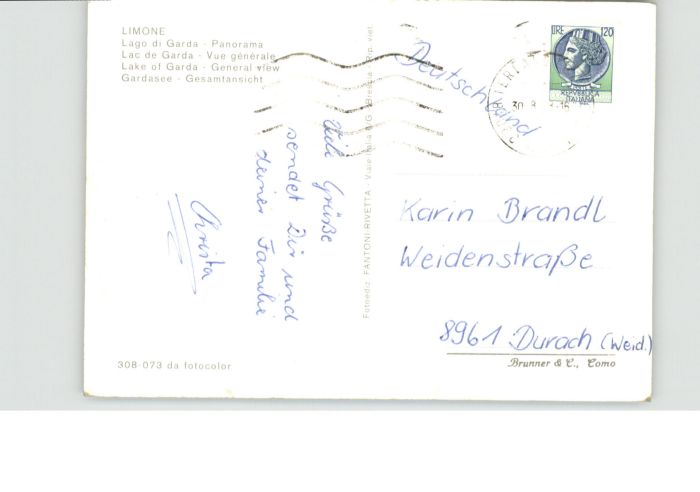 LIMONE
Lago di Garda - Panorama
Lac de Garda - Vue générale
Lake of Garda - General view
Gardasee - Gesamtansicht
Viele Grüße
sendet Dir und
deiner Familie
Christa
308-073 da fotocolor
Fotoediz. FANTONI-RIVETTA - Viale Italia - Brescia - Rip. viet.
Deutschland
LIRE 120
REPVBBLICA
ITALIANA
30 8
Karin Brandl
Weidenstraße
8961 Durach (Weid.)
Brunner & C., Como